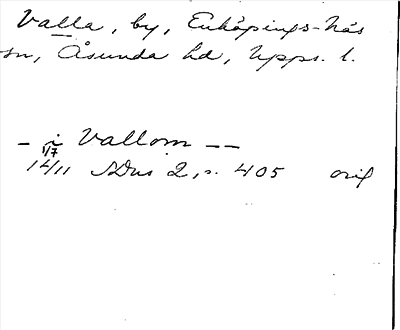 Valla, by, Enköpings-Näs
sn, Åsunda hd, Upps. l.
- i Vallom --
1/7
14/11 SDns 2, s. 405 orig